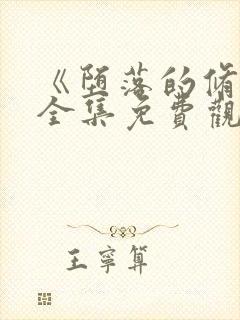 《堕落的脩
全集免費觀
王寧算